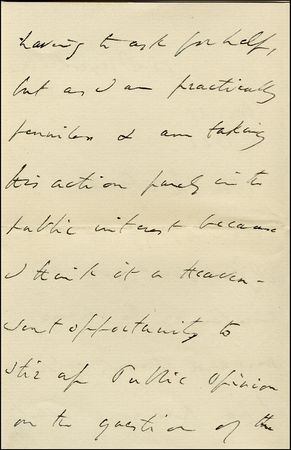 having to ask for help,
but as I am practically
penniless & am taking
this action purely in the
public interest because
I think it a Heaven-
sent opportunity to
stir up Public Opinion
on the question of the